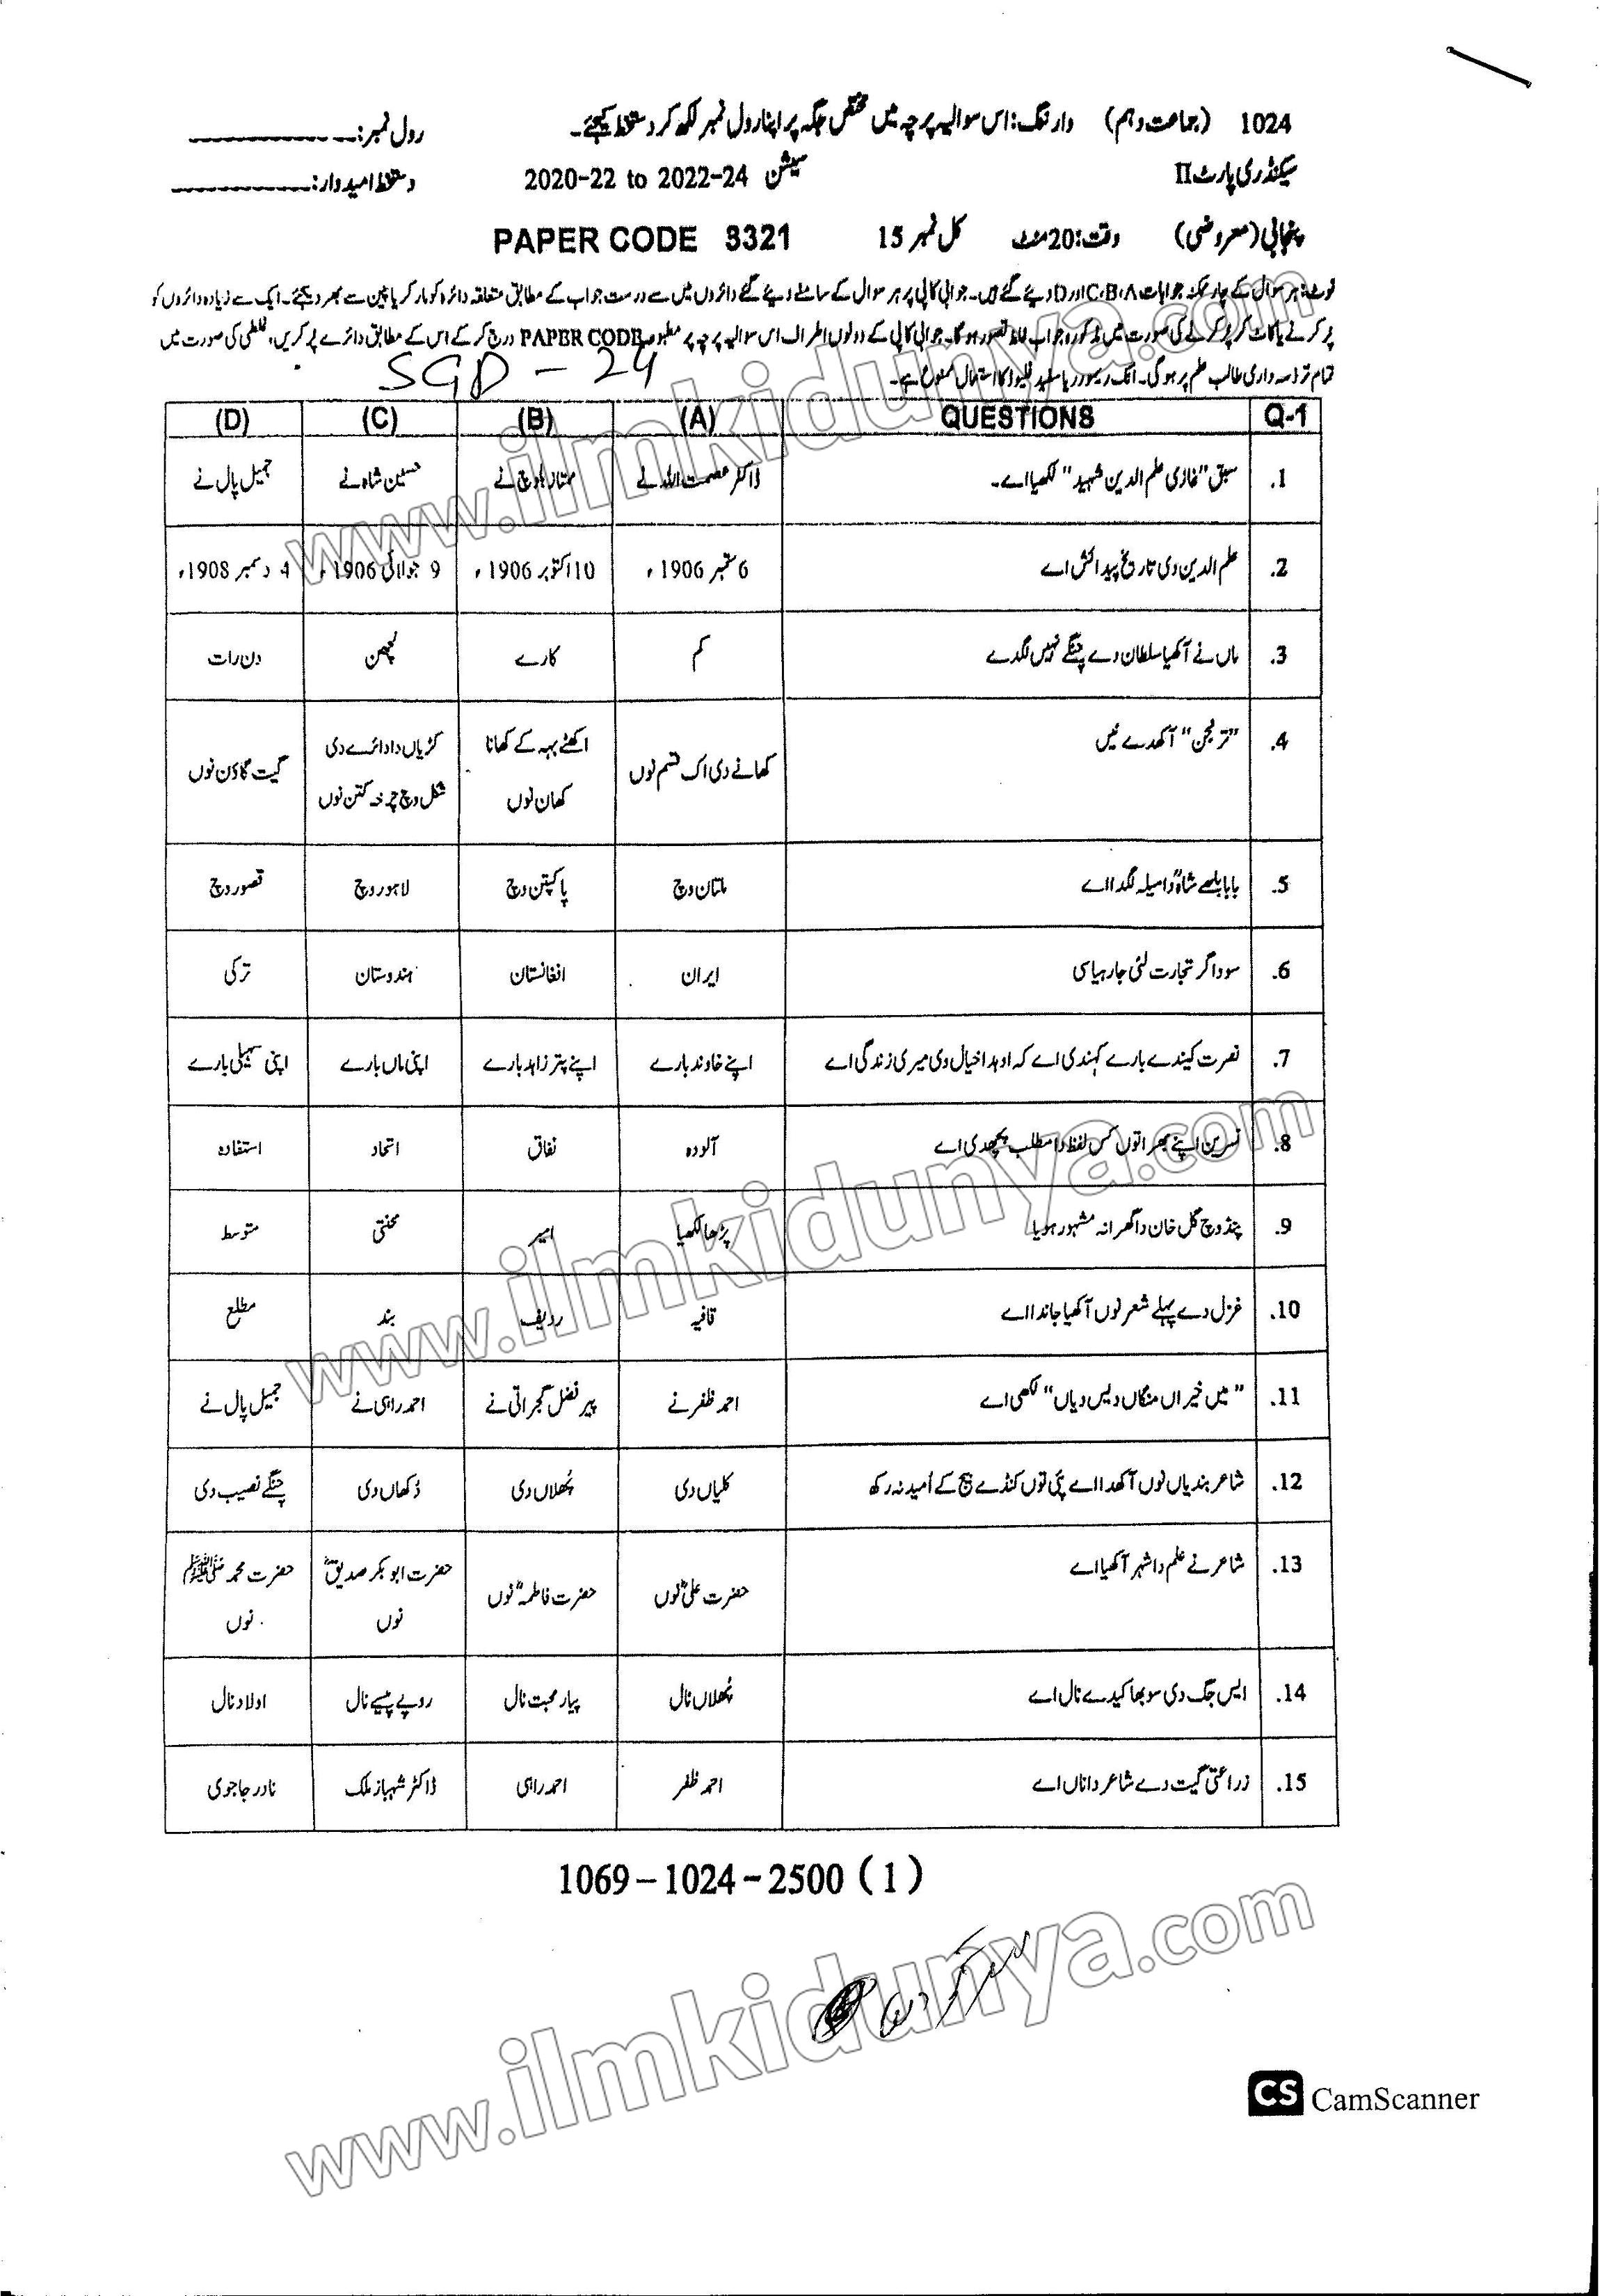 1024 (جماعت دہم) وارننگ: اس سوالیہ پرچہ میں مختص جگہ پر اپنا رول نمبر لکھ کر دستخط کیجئے۔ رول نمبر: ----------
سیکنڈری پارٹ II سیشن 2020-22 to 2022-24 دستخط امیدوار: ----------
پنجابی (معروضی) وقت: 20 منٹ کل نمبر 15 PAPER CODE 3321
نوٹ: ہر سوال کے چار ممکنہ جوابات C،B،A اور D دیئے گئے ہیں۔ جوابی کاپی پر ہر سوال کے سامنے دیئے گئے دائروں میں سے درست جواب کے مطابق متعلقہ دائرہ کو مارکر یا پین سے بھر دیجئے۔ ایک سے زیادہ دائروں کو
پر کرنے یا کاٹ کر پر کرنے کی صورت میں مذکورہ جواب غلط تصور ہوگا۔ جوابی کاپی کے دونوں اطراف اس سوالیہ پرچہ پر مطبوعہ PAPER CODE درج کر کے اس کے مطابق دائرے پر کریں، غلطی کی صورت میں
تمام تر ذمہ داری طالب علم پر ہوگی۔ انک ریموور یا سفید فلیوڈ کا استعمال ممنوع ہے۔
SGD - 24
Q-1 QUESTIONS (A) (B) (C) (D)
1. سبق "غازی علم الدین شہید" لکھیا اے۔ ڈاکٹر عصمت اللہ نے ممتاز بلوچ نے حسین شاہ نے جمیل پال نے
2. علم الدین دی تاریخ پیدائش اے 6 ستمبر 1906ء 10 اکتوبر 1906ء 9 جولائی 1906ء 4 دسمبر 1908ء
3. ماں نے آکھیا سلطان دے چنگے نہیں لگدے کم کارے لچھن دن رات
4. "ترنجن" آکھدے نیں کھانے دی اک قسم نوں اکٹھے بہہ کے کھانا کھان نوں کڑیاں دا دائرے دی شکل وچ چرخہ کتن نوں گیت گاؤن نوں
5. بابا بلھے شاہؒ دا میلہ لگدا اے ملتان وچ پاکپتن وچ لاہور وچ قصور وچ
6. سوداگر تجارت لئی جا رہیا سی ایران افغانستان ہندوستان ترکی
7. نصرت کیندے بارے کہندی اے کہ اوہدا خیال وی میری زندگی اے اپنے خاوند بارے اپنے پتر زاہد بارے اپنی ماں بارے اپنی سہیلی بارے
8. نسرین اپنے بھرا توں کس لفظ دا مطلب پچھدی اے آلودہ نفاق اتحاد استفادہ
9. پنڈ وچ گل خان دا گھرانہ مشہور ہویا پڑھا لکھیا امیر محنتی متوسط
10. غزل دے پہلے شعر نوں آکھیا جاندا اے قافیہ ردیف بند مطلع
11. "میں خیراں منگاں دیس دیاں" لکھی اے احمد ظفر نے پیر فضل گجراتی نے احمد راہی نے جمیل پال نے
12. شاعر بندیاں نوں آکھدا اے پئی توں کنڈے بیج کے اُمید نہ رکھ کلیاں دی پُھلاں دی دُکھاں دی چنگے نصیب دی
13. شاعر نے علم دا شہر آکھیا اے حضرت علیؓ نوں حضرت فاطمہؓ نوں حضرت ابوبکر صدیقؓ نوں حضرت محمد ﷺ نوں
14. ایس جگ دی سوبھا کیہدے نال اے پُھلاں نال پیار محبت نال روپے پیسے نال اولاد نال
15. زراعتی گیت دے شاعر دا ناں اے احمد ظفر احمد راہی ڈاکٹر شہباز ملک نادر جاجوی
1069-1024-2500 (1)
www.ilmkidunya.com
www.ilmkidunya.com
www.ilmkidunya.com
CS CamScanner